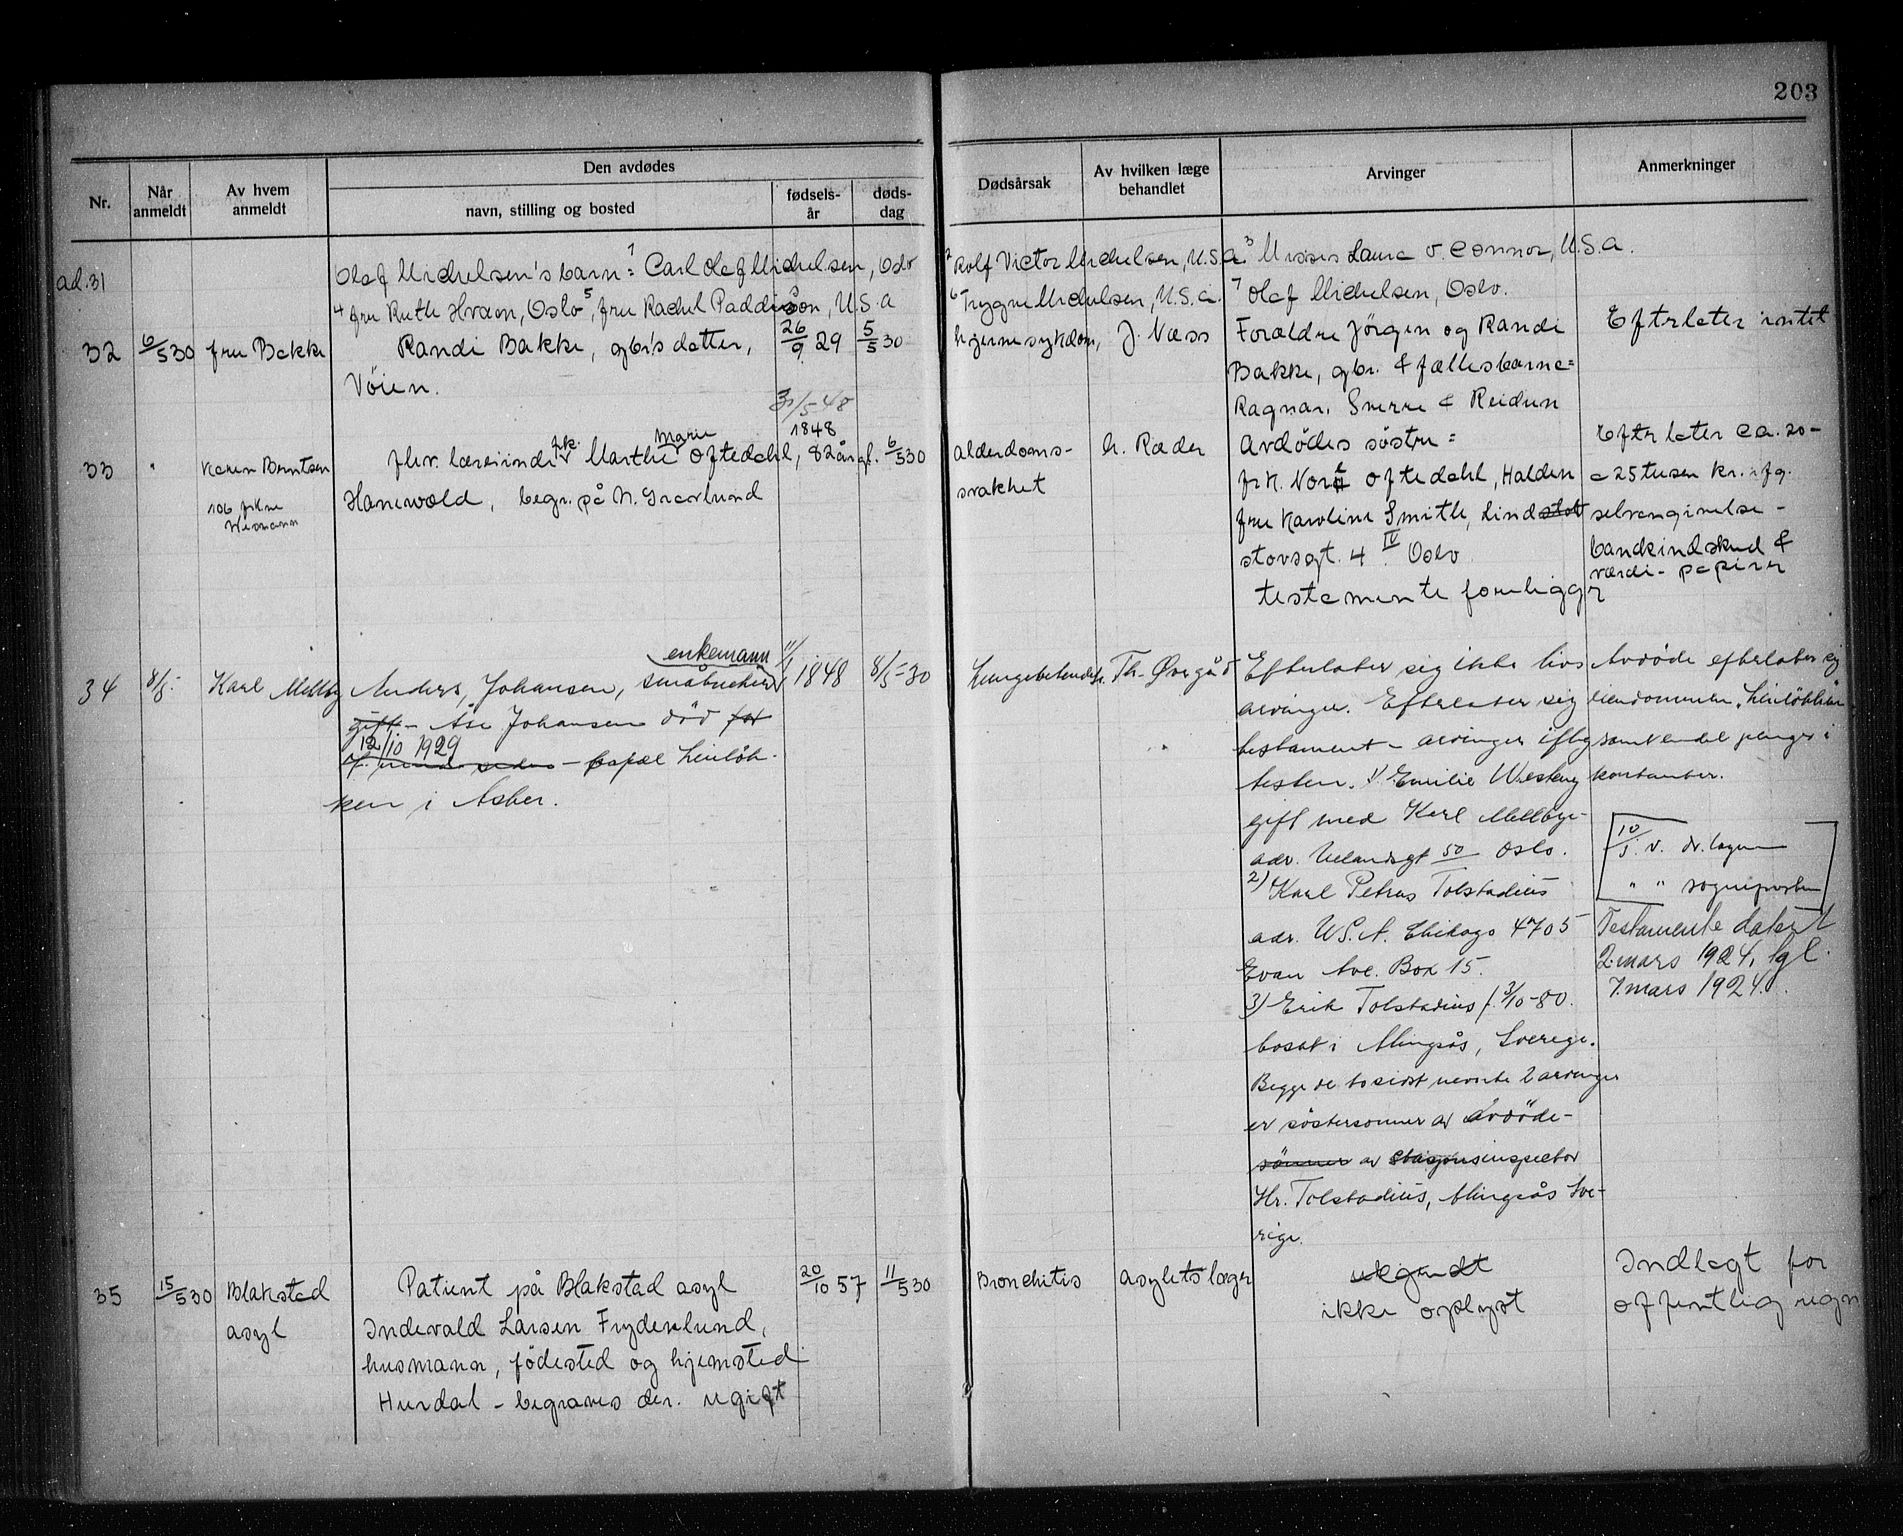 203
Nr.
Når anmeldt
Av hvem anmeldt
Den avdødes
navn, stilling og bosted
fødsels-år
døds-dag
Dødsårsak
Av hvilken læge behandlet
Arvinger
Anmerkninger
ad. 31
Olaf Michelsen's barn: 1 Carl Olaf Michelsen, Oslo
2 Rolf Victor Michelsen, U.S.a. 3 Missis Laura O Connor, U.S.a.
4 fru Ruth Hvam, Oslo 5, fru Rachel Paddison, U.S.a
6 Trygve Michelsen, U.S.a. 7 Olaf Michelsen, Oslo.
32
6/5 30
fru Bakke
Randi Bakke, gbr's datter,
Vøien.
26/9 29
5/5 30
hjernesykdom,
J. Næss
Forældre Jörgen og Randi
Bakke, gbr. & fællesbarn=
Ragnar, Sverre & Reidun
Efterlater intet
33
"
Karen Berntsen
106 frkne
fhv. lærerinde frk. Marthe Marie Oftedahl, 82 år gl.
Hanevold, begr. på N.
31/5 48
1848
6/5 30
alderdoms-
svakhet
h. Ræder
Avdødes søstre =
frk. Nora Oftedahl, Halden
fru Karoline Smith, Lindstol
stovsgt. 4 IV Oslo
testamente foreligger
Efterlater ca. 20-
a 25 tusen kr. ifg.
selvangivelse -
bankindskud &
værdi-papirer
34
8/5.
Karl Melby
Anders Johansen, småbruker enkemann
gift - Åse Johansen död for
12/10 1929
- popæl Leinlök-
ken i Asker.
11/1 1848
8/5-30
Lungebetendelse.
Th. Øvergård
Efterlater sig ikke livs
arvinger. Efterlater sig
testament - arvinger iflg
testen. 1) Emilie Westeng
gift med Karl Mellbye-
adr. Uelandsgt 50 Oslo.
2) Karl Petrus Tolstadius
adr. U.S.A. Chikago 4705
Evan Ave. Box 15.
3) Erik Tolstadius f. 3/10-80.
bosat i Alingsås, Sverige.
Begge de to sidst nevnte 2 arvinger
er söstersönner av avdöde-
sönner av stasjonsinspektør
Hr. Tolstadius, Alingsås Sve-
rige.
Avdöde efterlater sig
eiendommen "Leinlökken"
samt endel penger i
kontanter.
10/5. v. dr. lagen
" " sognepresten
Testamente datert
2. mars 1924, tgl.
7. mars 1924.
35
15/5 30
Blakstad
asyl
Patient på Blakstad asyl
Indevald Larsen Frydenlund,
husmann, födested og hjemsted
Hurdal - begraves der. ugift
20/10 57
11/5 30
Bronchitis
asylets læger
ukjendt
ikke oplyst
Indlagt for
offentlig regn